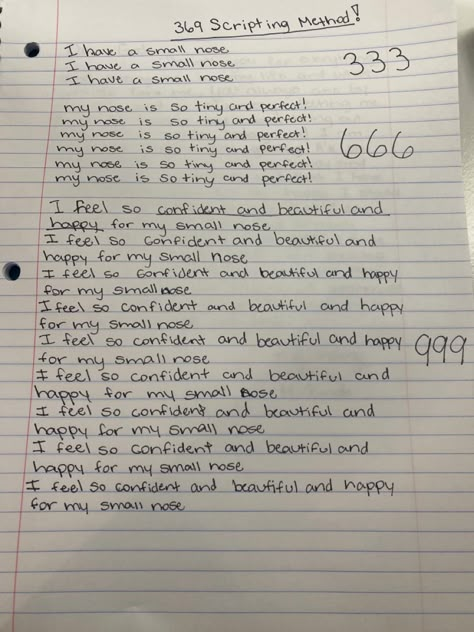 369 Scripting Method!
I have a small nose
I have a small nose
I have a small nose
333
my nose is so tiny and perfect!
my nose is so tiny and perfect!
my nose is so tiny and perfect!
my nose is so tiny and perfect!
my nose is so tiny and perfect!
my nose is so tiny and perfect!
666
I feel so confident and beautiful and
happy for my small nose
I feel so confident and beautiful and
happy for my small nose
I feel so confident and beautiful and happy
for my small nose
I feel so confident and beautiful and happy
for my small nose
I feel so confident and beautiful and happy
for my small nose
999
I feel so confident and beautiful and
happy for my small nose
I feel so confident and beautiful and
happy for my small nose
I feel so confident and beautiful and
happy for my small nose
I feel so confident and beautiful and happy
for my small nose